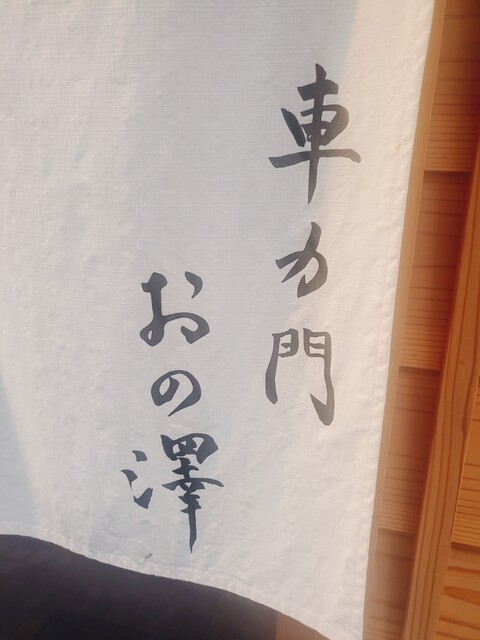 車力門
おの澤